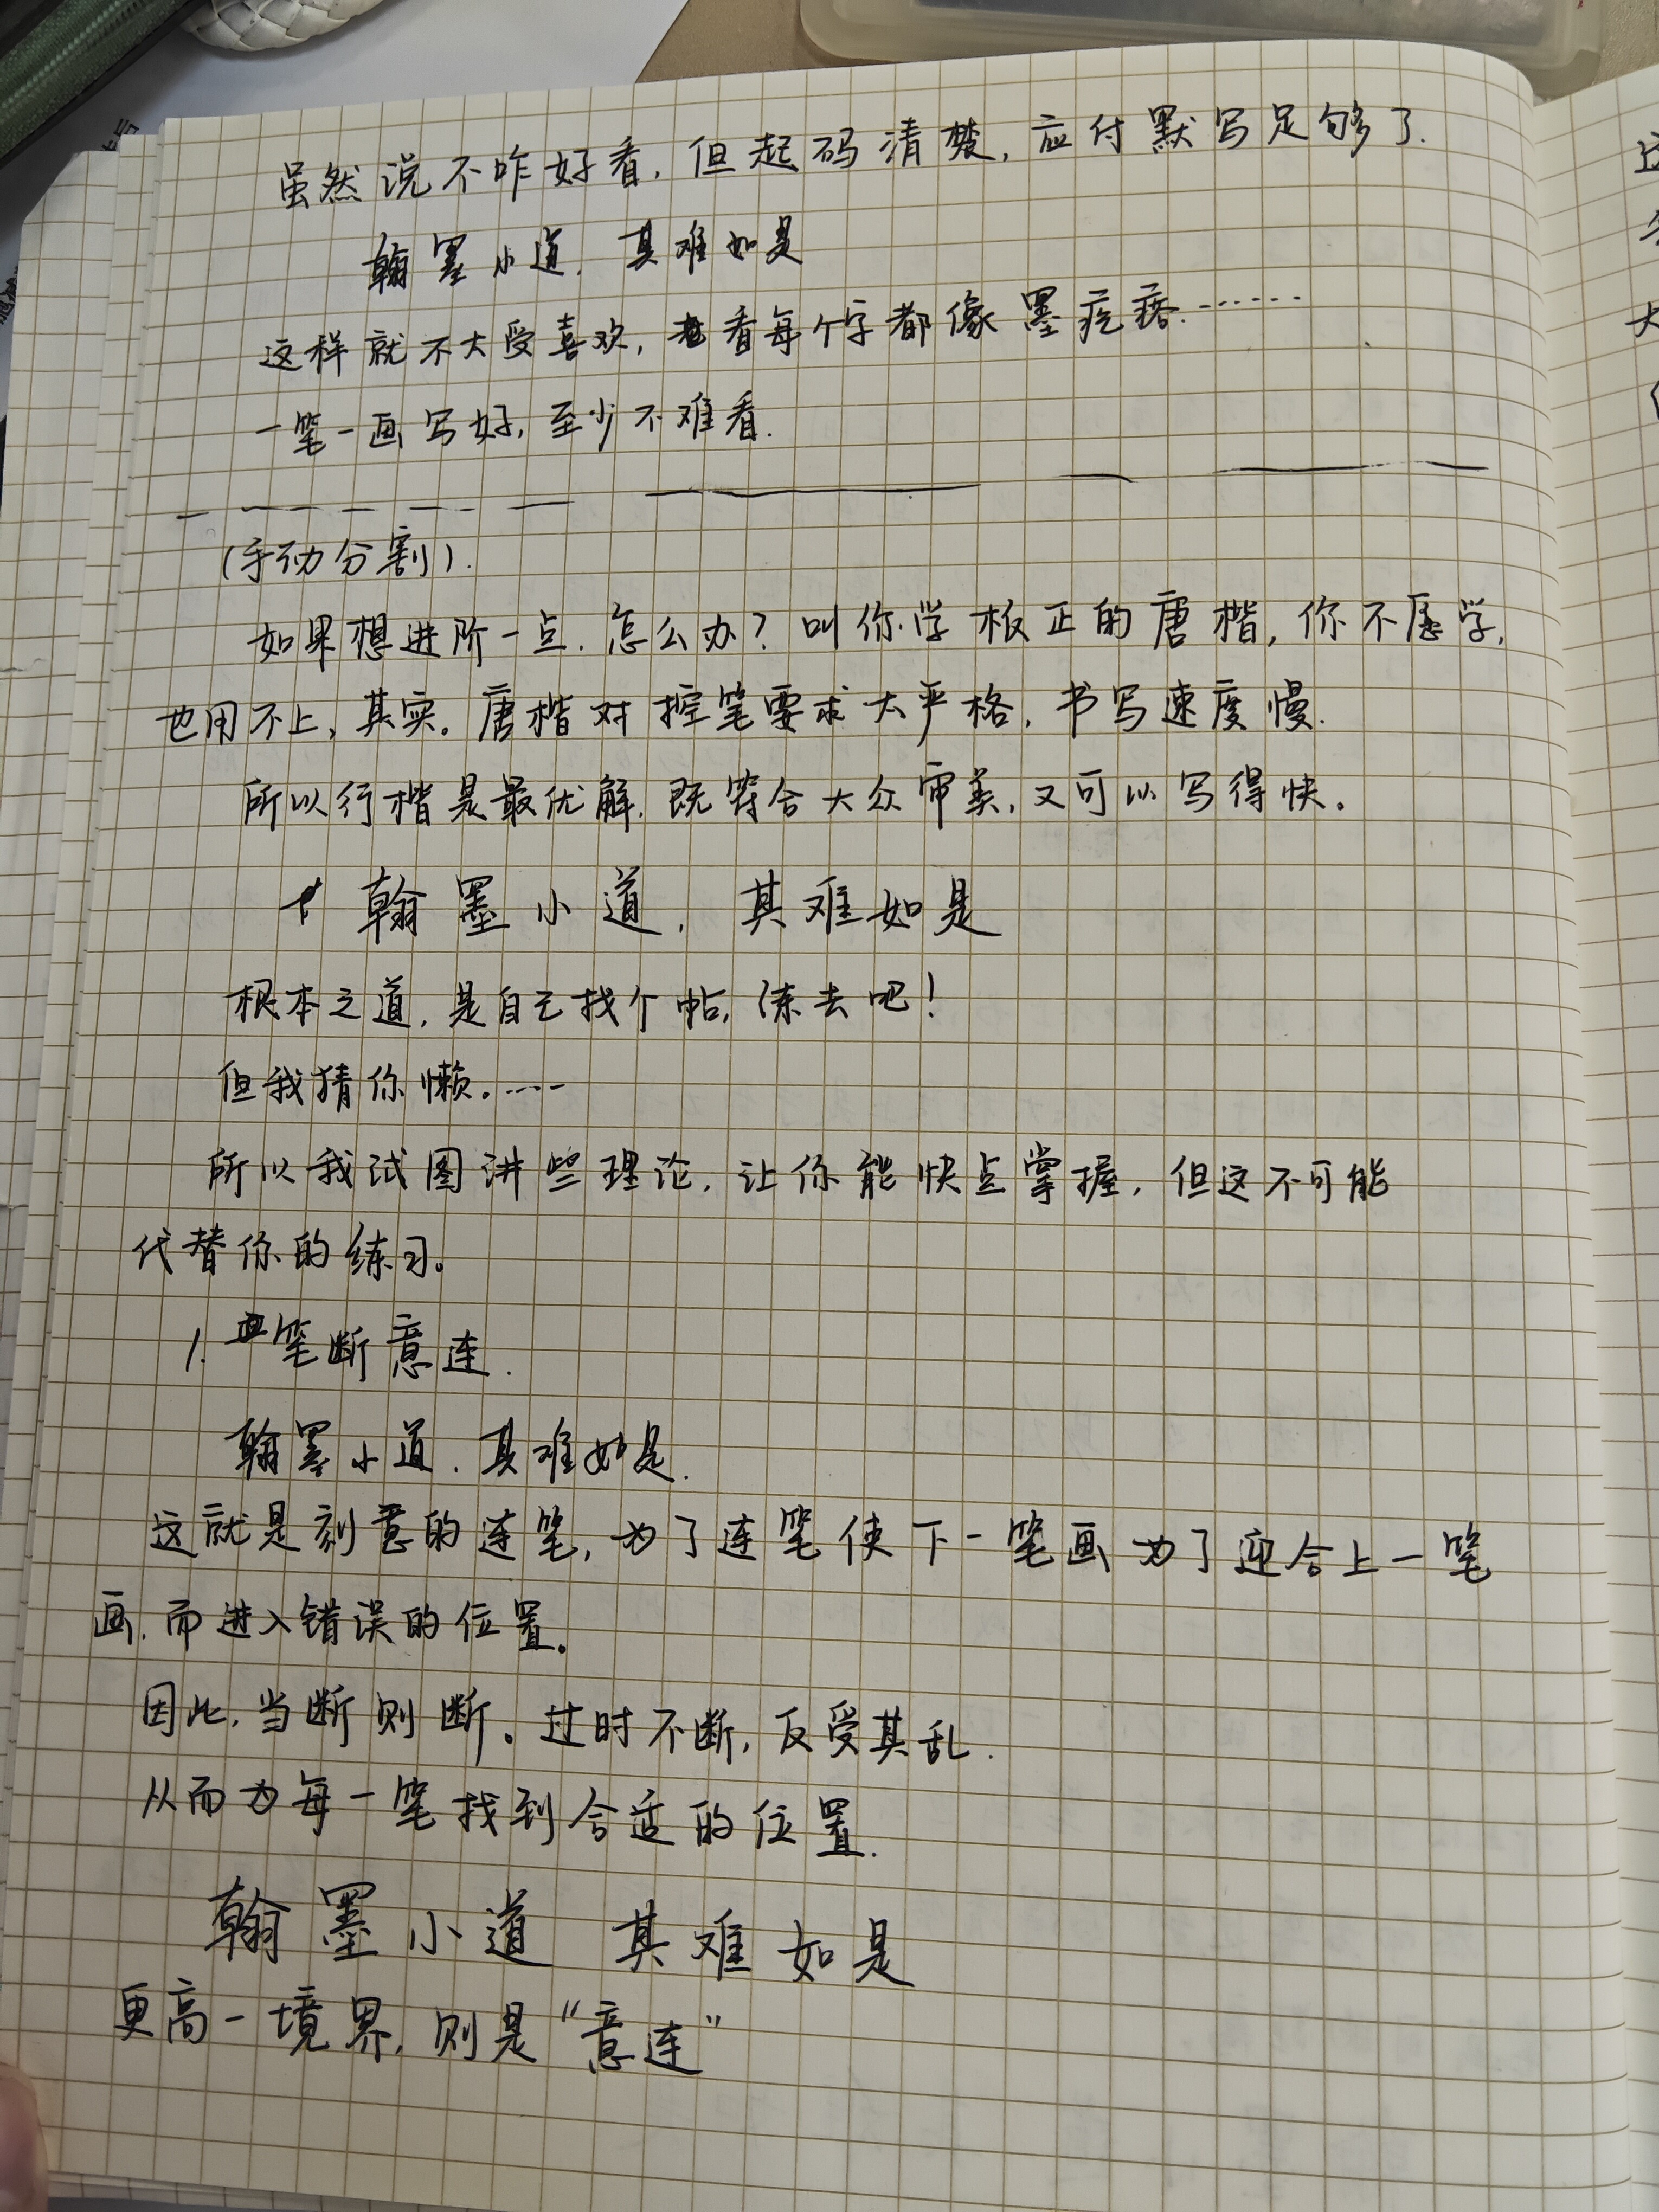 虽然说不咋好看，但起码清楚，应付默写足够了．
翰墨小道．其难如是
这样就不大受喜欢，看每个字都像墨疙瘩．……
一笔一画写好，至少不难看．
（手动分割）．
如果想进阶一点．怎么办？叫你学板正的唐楷，你不愿学，
也用不上，其实。唐楷对控笔要求太严格，书写速度慢．
所以行楷是最优解．既符合大众审美，又可以写得快。
翰墨小道，其难如是
根本之道，是自己找个帖，练去吧！
但我猜你懒。……
所以我试图讲些理论，让你能快点掌握，但这不可能
代替你的练习。
1. 笔断意连．
翰墨小道．其难如是．
这就是刻意的连笔，为了连笔使下一笔画为了迎合上一笔
画．而进入错误的位置。
因此，当断则断。过时不断，反受其乱．
从而为每一笔找到合适的位置．
翰墨小道 其难如是
更高一境界，则是“意连”